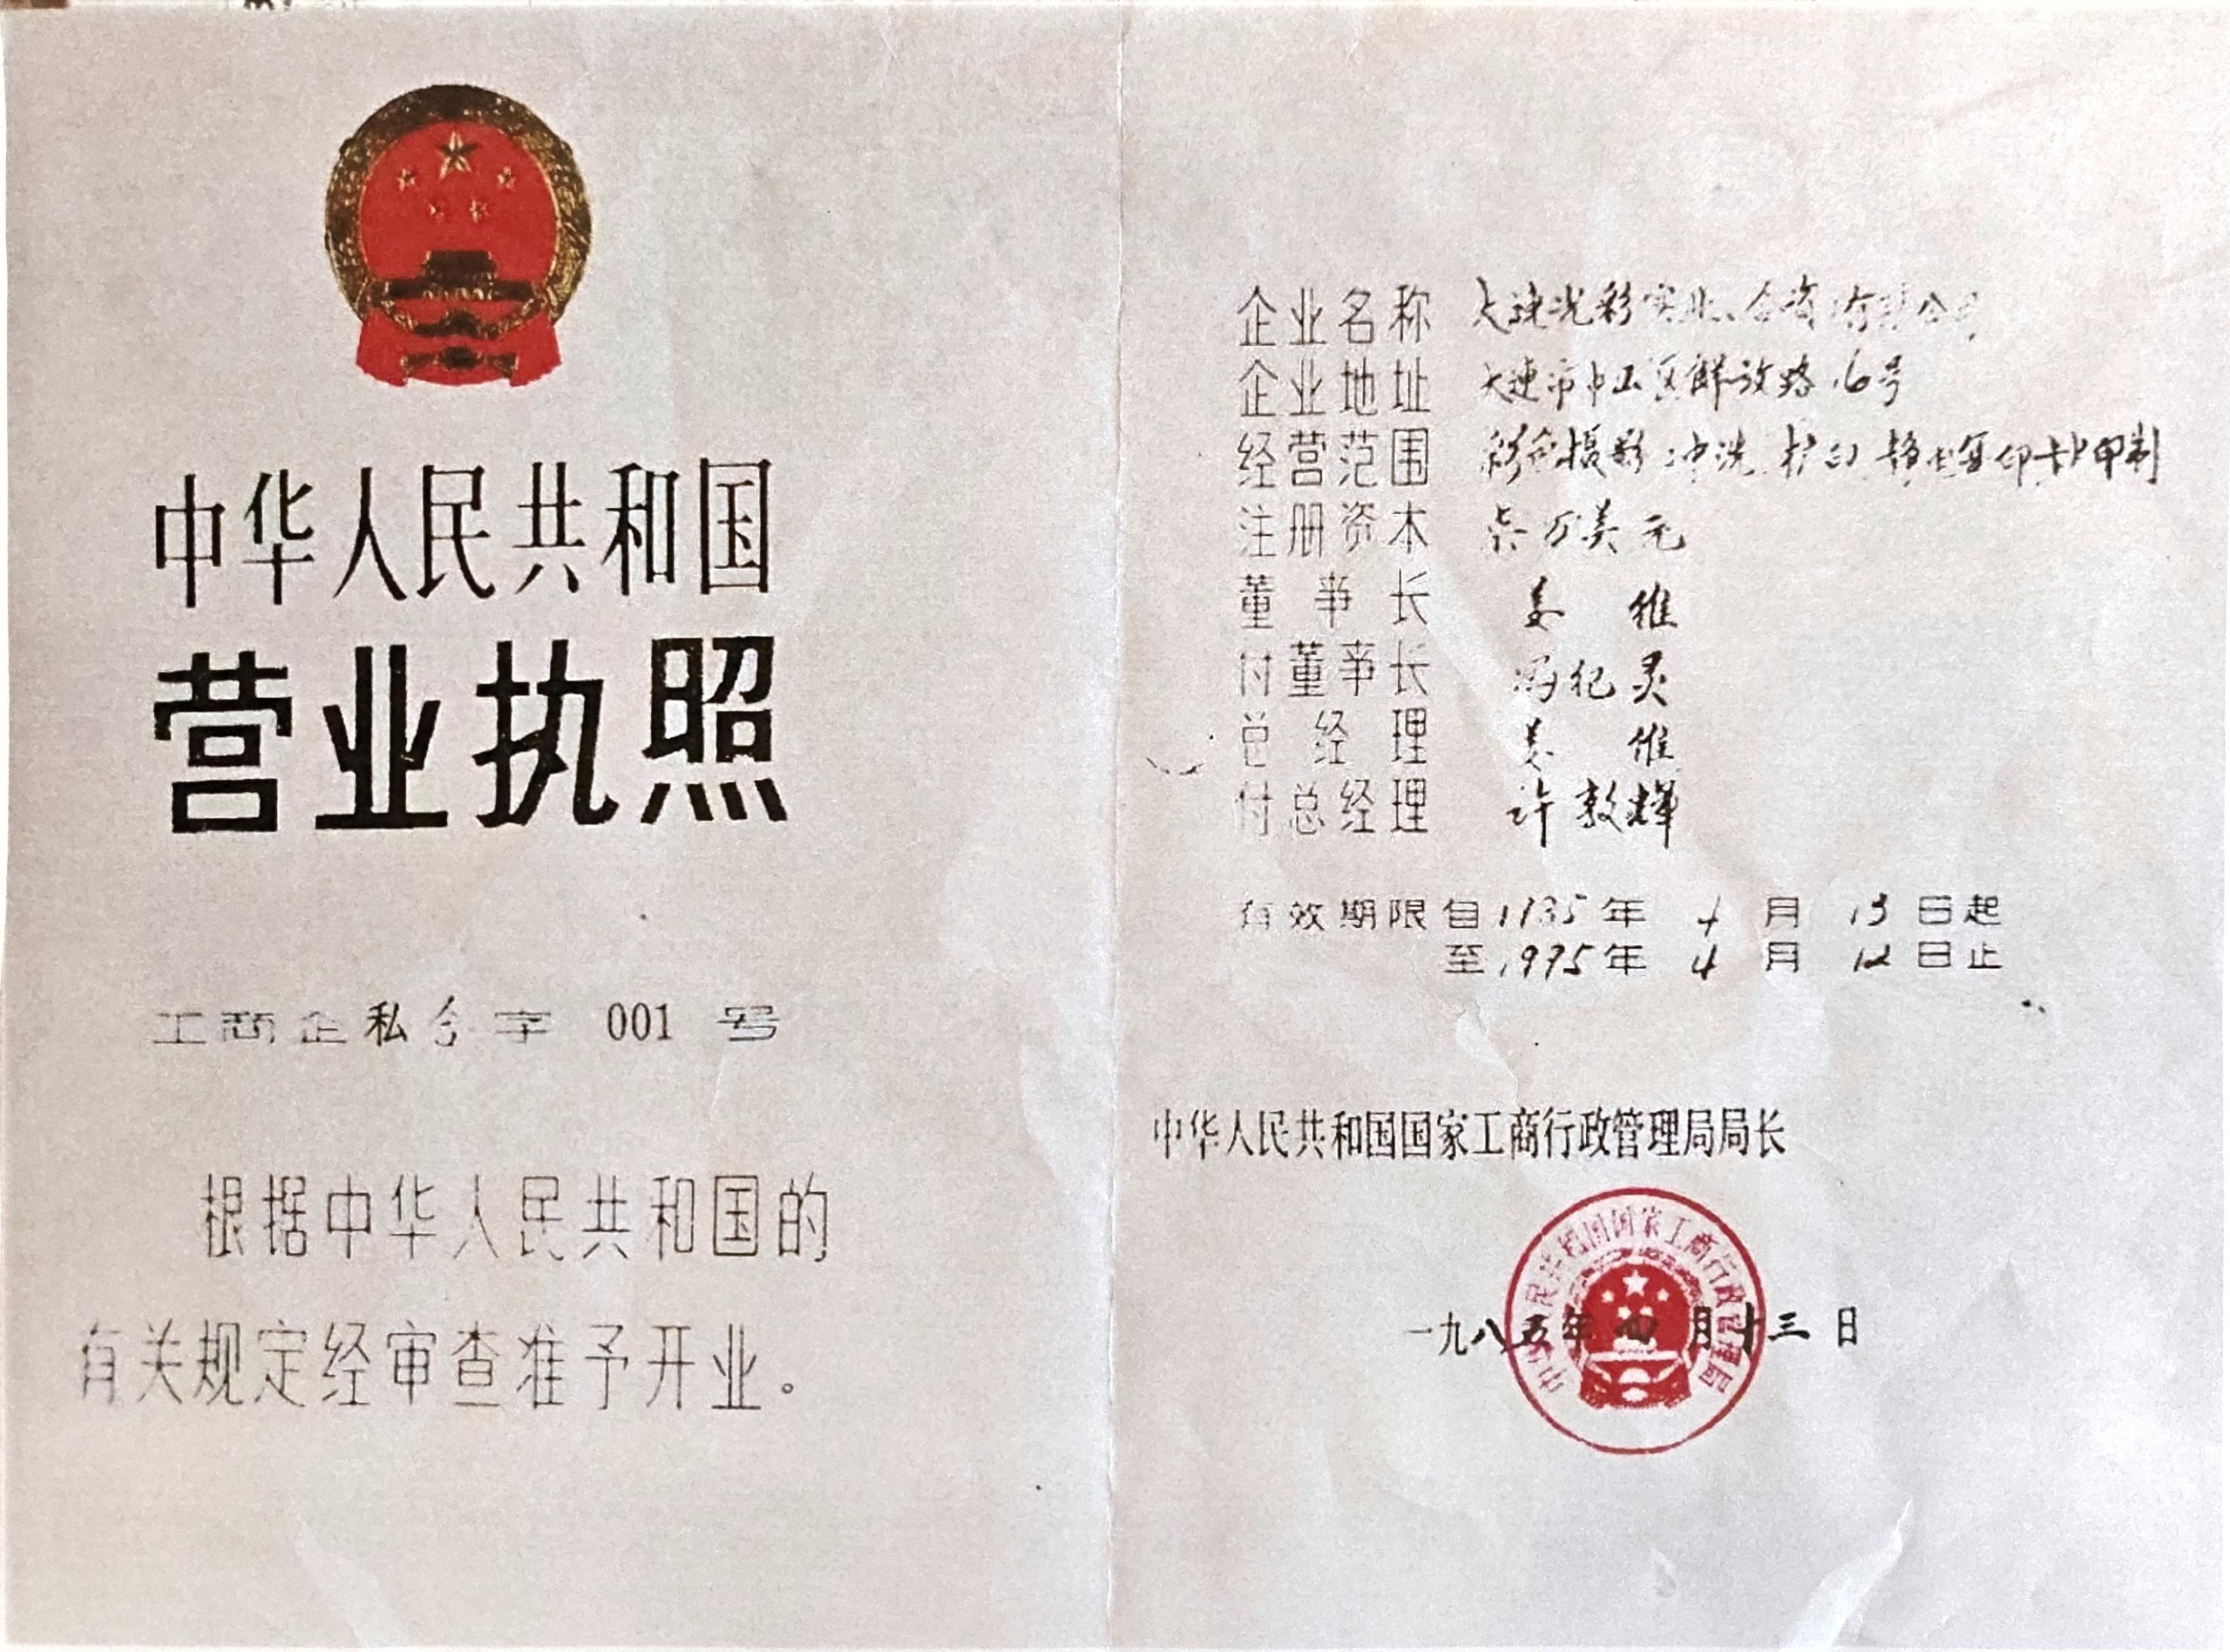 中华人民共和国
营业执照
工商企私合字 001 号
根据中华人民共和国的
有关规定经审查准予开业。
企业名称 大连光彩实业合资有限公司
企业地址 大连市中山区解放路16号
经营范围 彩色摄影 冲洗 扩印 静电复印
注册资本 柒万美元
董事长 姜维
付董事长 冯纪灵
总经理 姜维
付总经理 许敦辉
有效期限自1985年 4 月 13 日起
至1995年 4 月 12 日止
中华人民共和国国家工商行政管理局局长
中华人民共和国国家工商行政管理局
一九八五年四月十三日